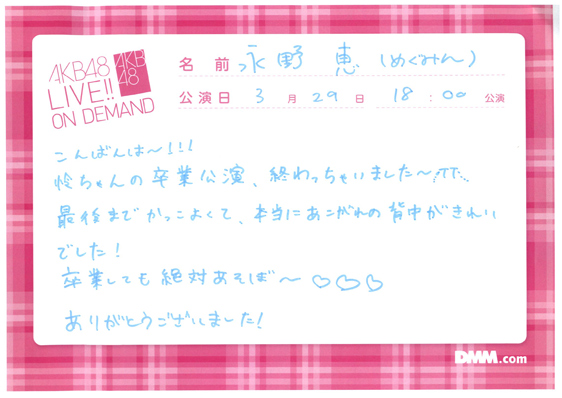 AKB48
LIVE!!
ON DEMAND
AKB
48
名前 永野 恵 (めぐみん)
公演日 3月29日 18:00 公演
こんばんは〜!!!
怜ちゃんの卒業公演、終わっちゃいました〜
最後までかっこよくて、本当にあこがれの背中がきれい
でした!
卒業しても絶対あそぼ〜♡♡♡
ありがとうございました!
DMM.com